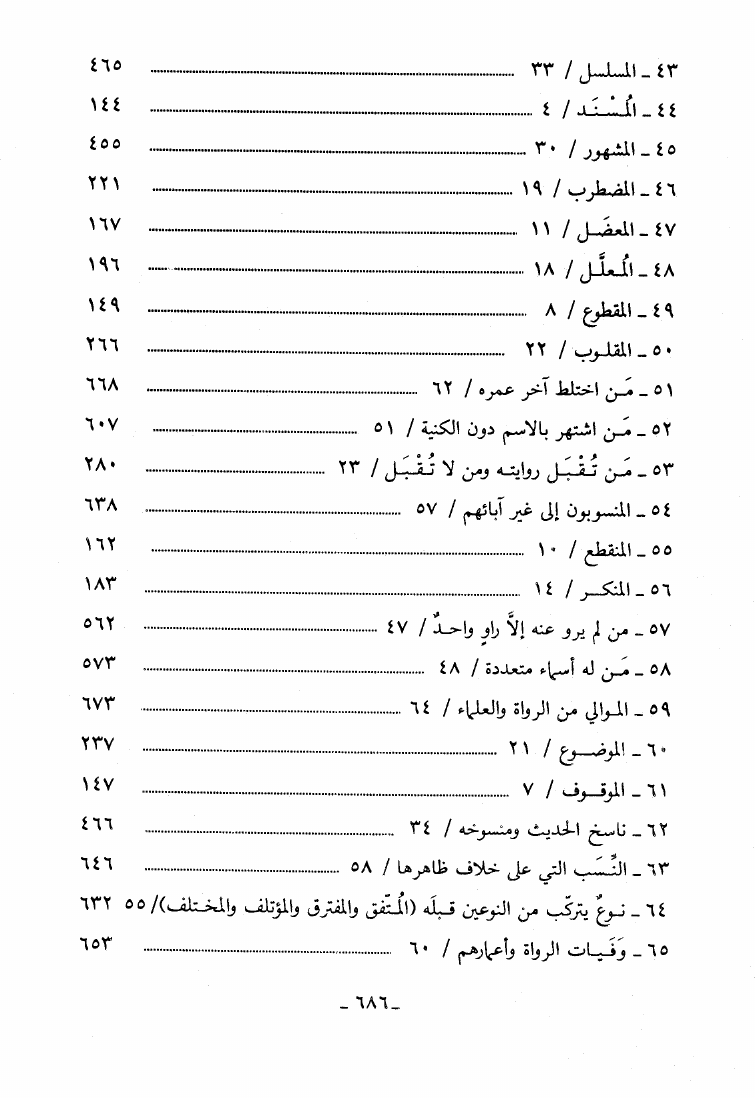 ٤٣ ـ المسلسل / ٣٣ ........ ٤٦٥
٤٤ ـ المُسْنَد / ٤ ........ ١٤٤
٤٥ ـ المشهور / ٣٠ ........ ٤٥٥
٤٦ ـ المضطرب / ١٩ ........ ٢٢١
٤٧ ـ المعضَل / ١١ ........ ١٦٧
٤٨ ـ المُعلَّل / ١٨ ........ ١٩٦
٤٩ ـ المقطوع / ٨ ........ ١٤٩
٥٠ ـ المقلوب / ٢٢ ........ ٢٦٦
٥١ ـ مَن اختلط آخر عمره / ٦٢ ........ ٦٦٨
٥٢ ـ مَن اشتهر بالاسم دون الكنية / ٥١ ........ ٦٠٧
٥٣ ـ مَن تُقْبَل روايته ومن لا تُقْبَل / ٢٣ ........ ٢٨٠
٥٤ ـ المنسوبون إلى غير آبائهم / ٥٧ ........ ٦٣٨
٥٥ ـ المنقطع / ١٠ ........ ١٦٢
٥٦ ـ المنكر / ١٤ ........ ١٨٣
٥٧ ـ من لم يرو عنه إلاَّ راوٍ واحدٌ / ٤٧ ........ ٥٦٢
٥٨ ـ مَن له أسماء متعددة / ٤٨ ........ ٥٧٣
٥٩ ـ الموالي من الرواة والعلماء / ٦٤ ........ ٦٧٣
٦٠ ـ الموضوع / ٢١ ........ ٢٣٧
٦١ ـ الموقوف / ٧ ........ ١٤٧
٦٢ ـ ناسخ الحديث ومنسوخه / ٣٤ ........ ٤٦٦
٦٣ ـ النِّسَب التي على خلاف ظاهرها / ٥٨ ........ ٦٤٦
٦٤ ـ نوعٌ يتركّب من النوعين قبلَه (المُتّفق والمفترق والمؤتلف والمختلف)/ ٥٥ ٦٣٢
٦٥ ـ وَفَيات الرواة وأعمارهم / ٦٠ ........ ٦٥٣
ـ ٦٨٦ ـ